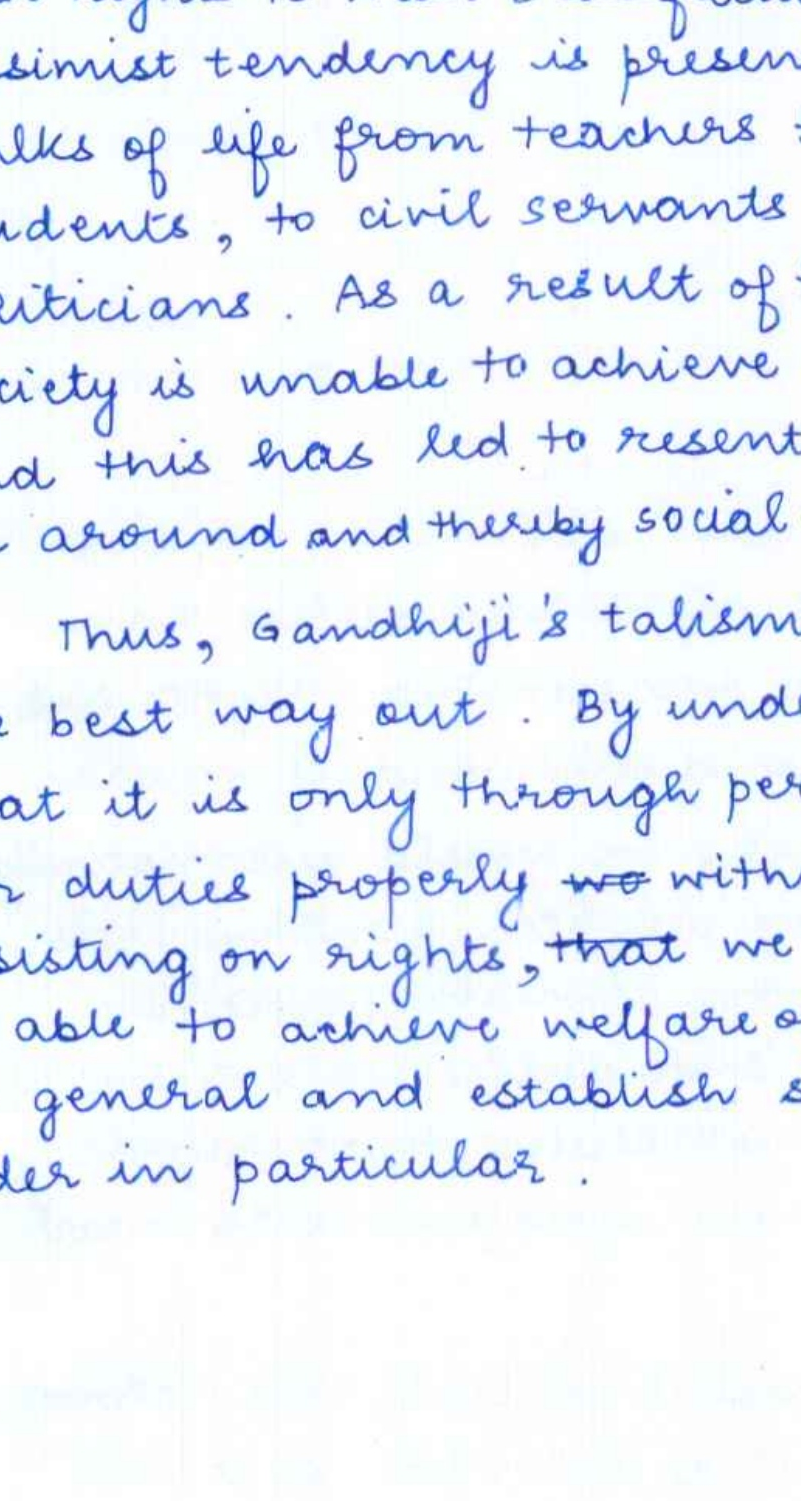 simist tendency is presen
lks of life from teachers
udents, to civil servants
liticians. As a result of
ciety is unable to achieve
d this has led to resent
around and thereby social
Thus, Gandhiji's talism
best way out. By unde
at it is only through per
r duties properly wo with
sisting on rights, that we
able to achieve welfare o
general and establish s
der in particular.